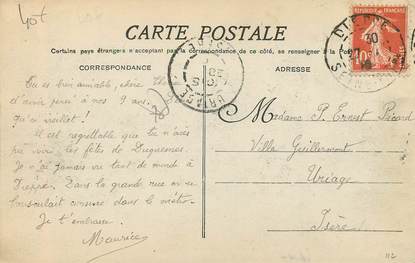 40f
CARTE POSTALE
Certains pays étrangers n'acceptant pas la correspondance de ce côté, se renseigner à la Poste
CORRESPONDANCE
ADRESSE
Tu es bien aimable, chère
d'avoir pensé à nos 9 ans
qu'a juillet!
Il est regrettable que tu n'aies
pu voir les fêtes de Duquesne.
Je n'ai jamais vu tant de monde à
Dieppe. Dans la grande rue on se
bousculait comme dans le métro.
Je t'embrasse.
Maurice
Madame P. Ernest Picard
Villa Guillermont
Uriage
Isère
112